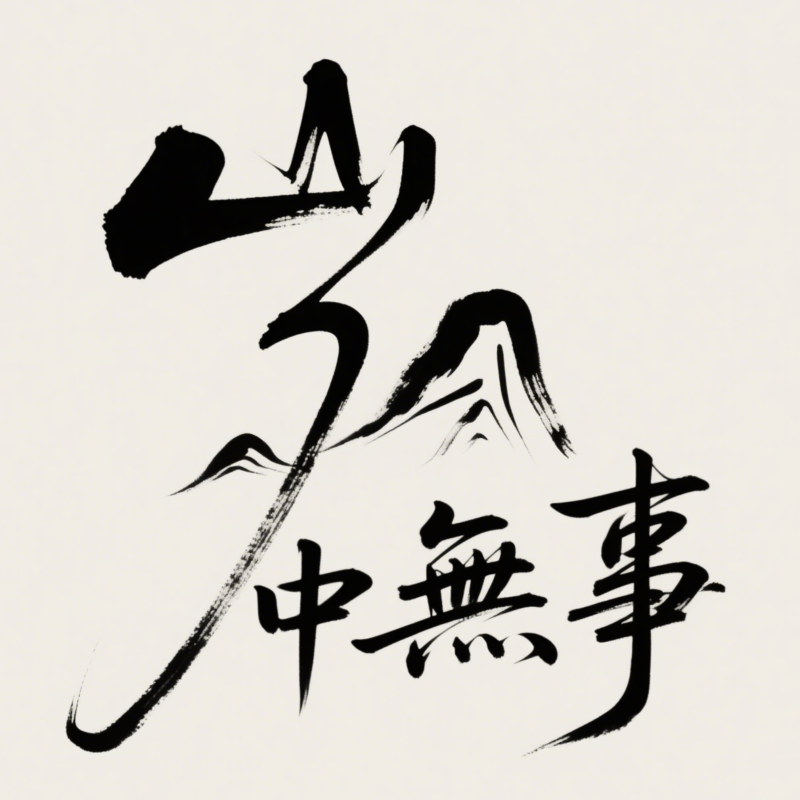 山
中無事